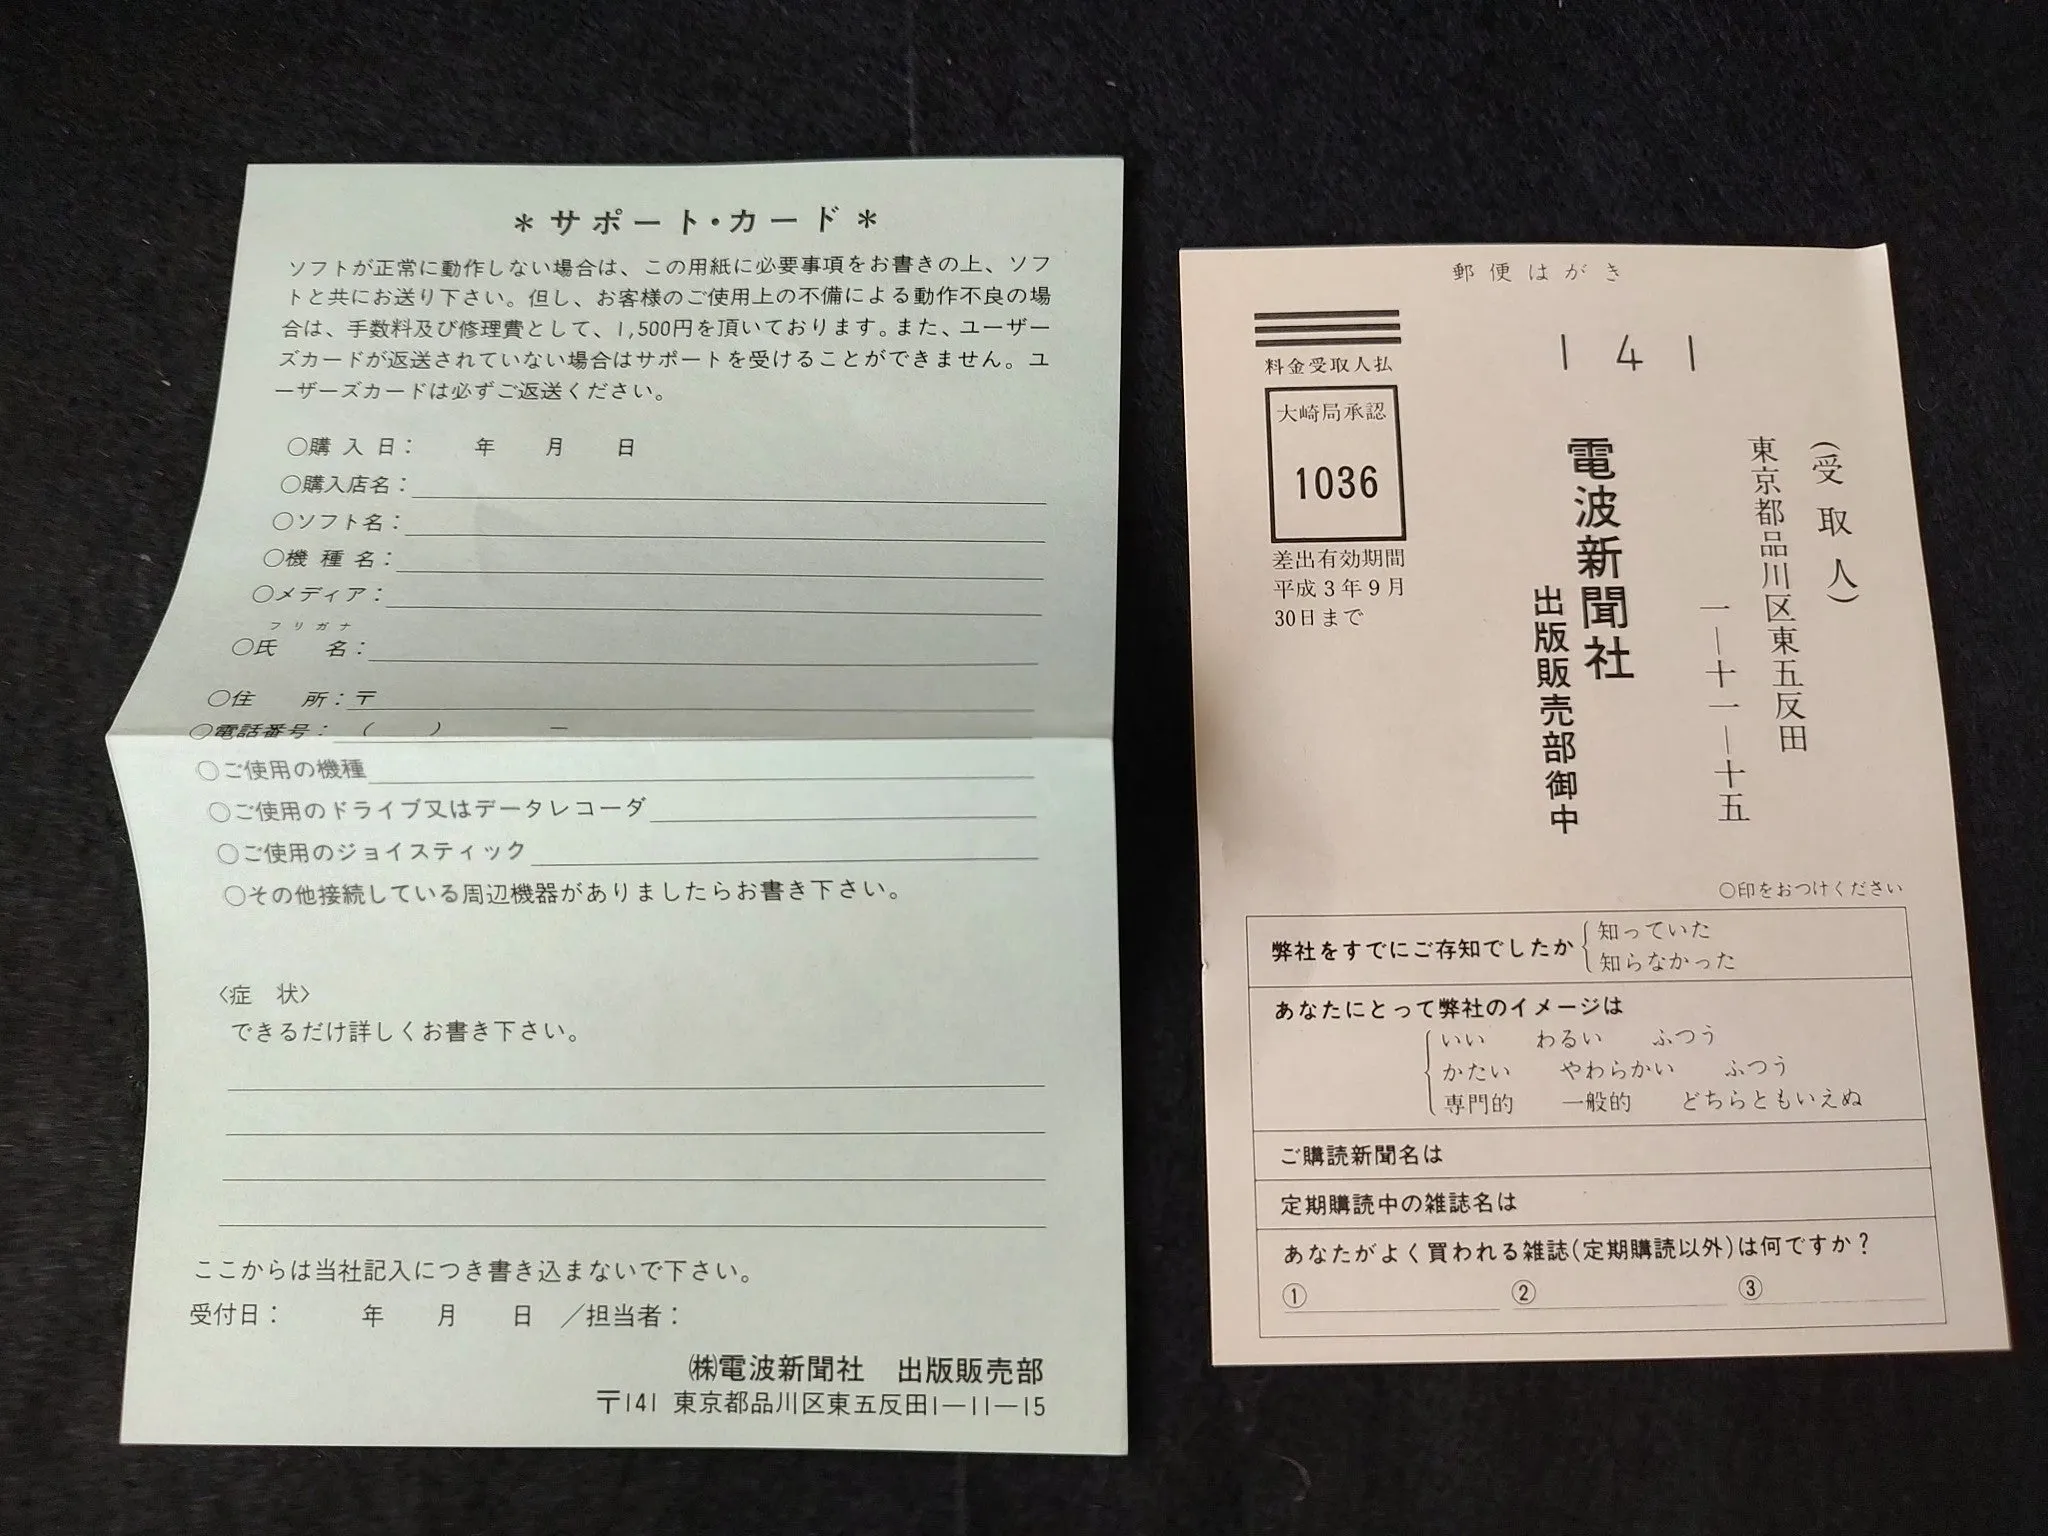 ＊サポート・カード＊
ソフトが正常に動作しない場合は、この用紙に必要事項をお書きの上、ソフ
トと共にお送り下さい。但し、お客様のご使用上の不備による動作不良の場
合は、手数料及び修理費として、1,500円を頂いております。また、ユーザー
ズカードが返送されていない場合はサポートを受けることができません。ユ
ーザーズカードは必ずご返送ください。
○購入日： 年 月 日
○購入店名：
○ソフト名：
○機種名：
○メディア：
フリガナ
○氏 名：
○住 所：〒
○電話番号： ( ) ―
○ご使用の機種
○ご使用のドライブ又はデータレコーダ
○ご使用のジョイスティック
○その他接続している周辺機器がありましたらお書き下さい。
〈症 状〉
できるだけ詳しくお書き下さい。
ここからは当社記入につき書き込まないで下さい。
受付日： 年 月 日 ／担当者：
㈱電波新聞社 出版販売部
〒141 東京都品川区東五反田1―11―15
郵便はがき
141
料金受取人払
大崎局承認
1036
差出有効期間
平成3年9月
30日まで
(受取人)
東京都品川区東五反田
一―十一―十五
電波新聞社
出版販売部御中
○印をおつけください
弊社をすでにご存知でしたか
知っていた
知らなかった
あなたにとって弊社のイメージは
いい わるい ふつう
かたい やわらかい ふつう
専門的 一般的 どちらともいえぬ
ご購読新聞名は
定期購読中の雑誌名は
あなたがよく買われる雑誌(定期購読以外)は何ですか？
① ② ③